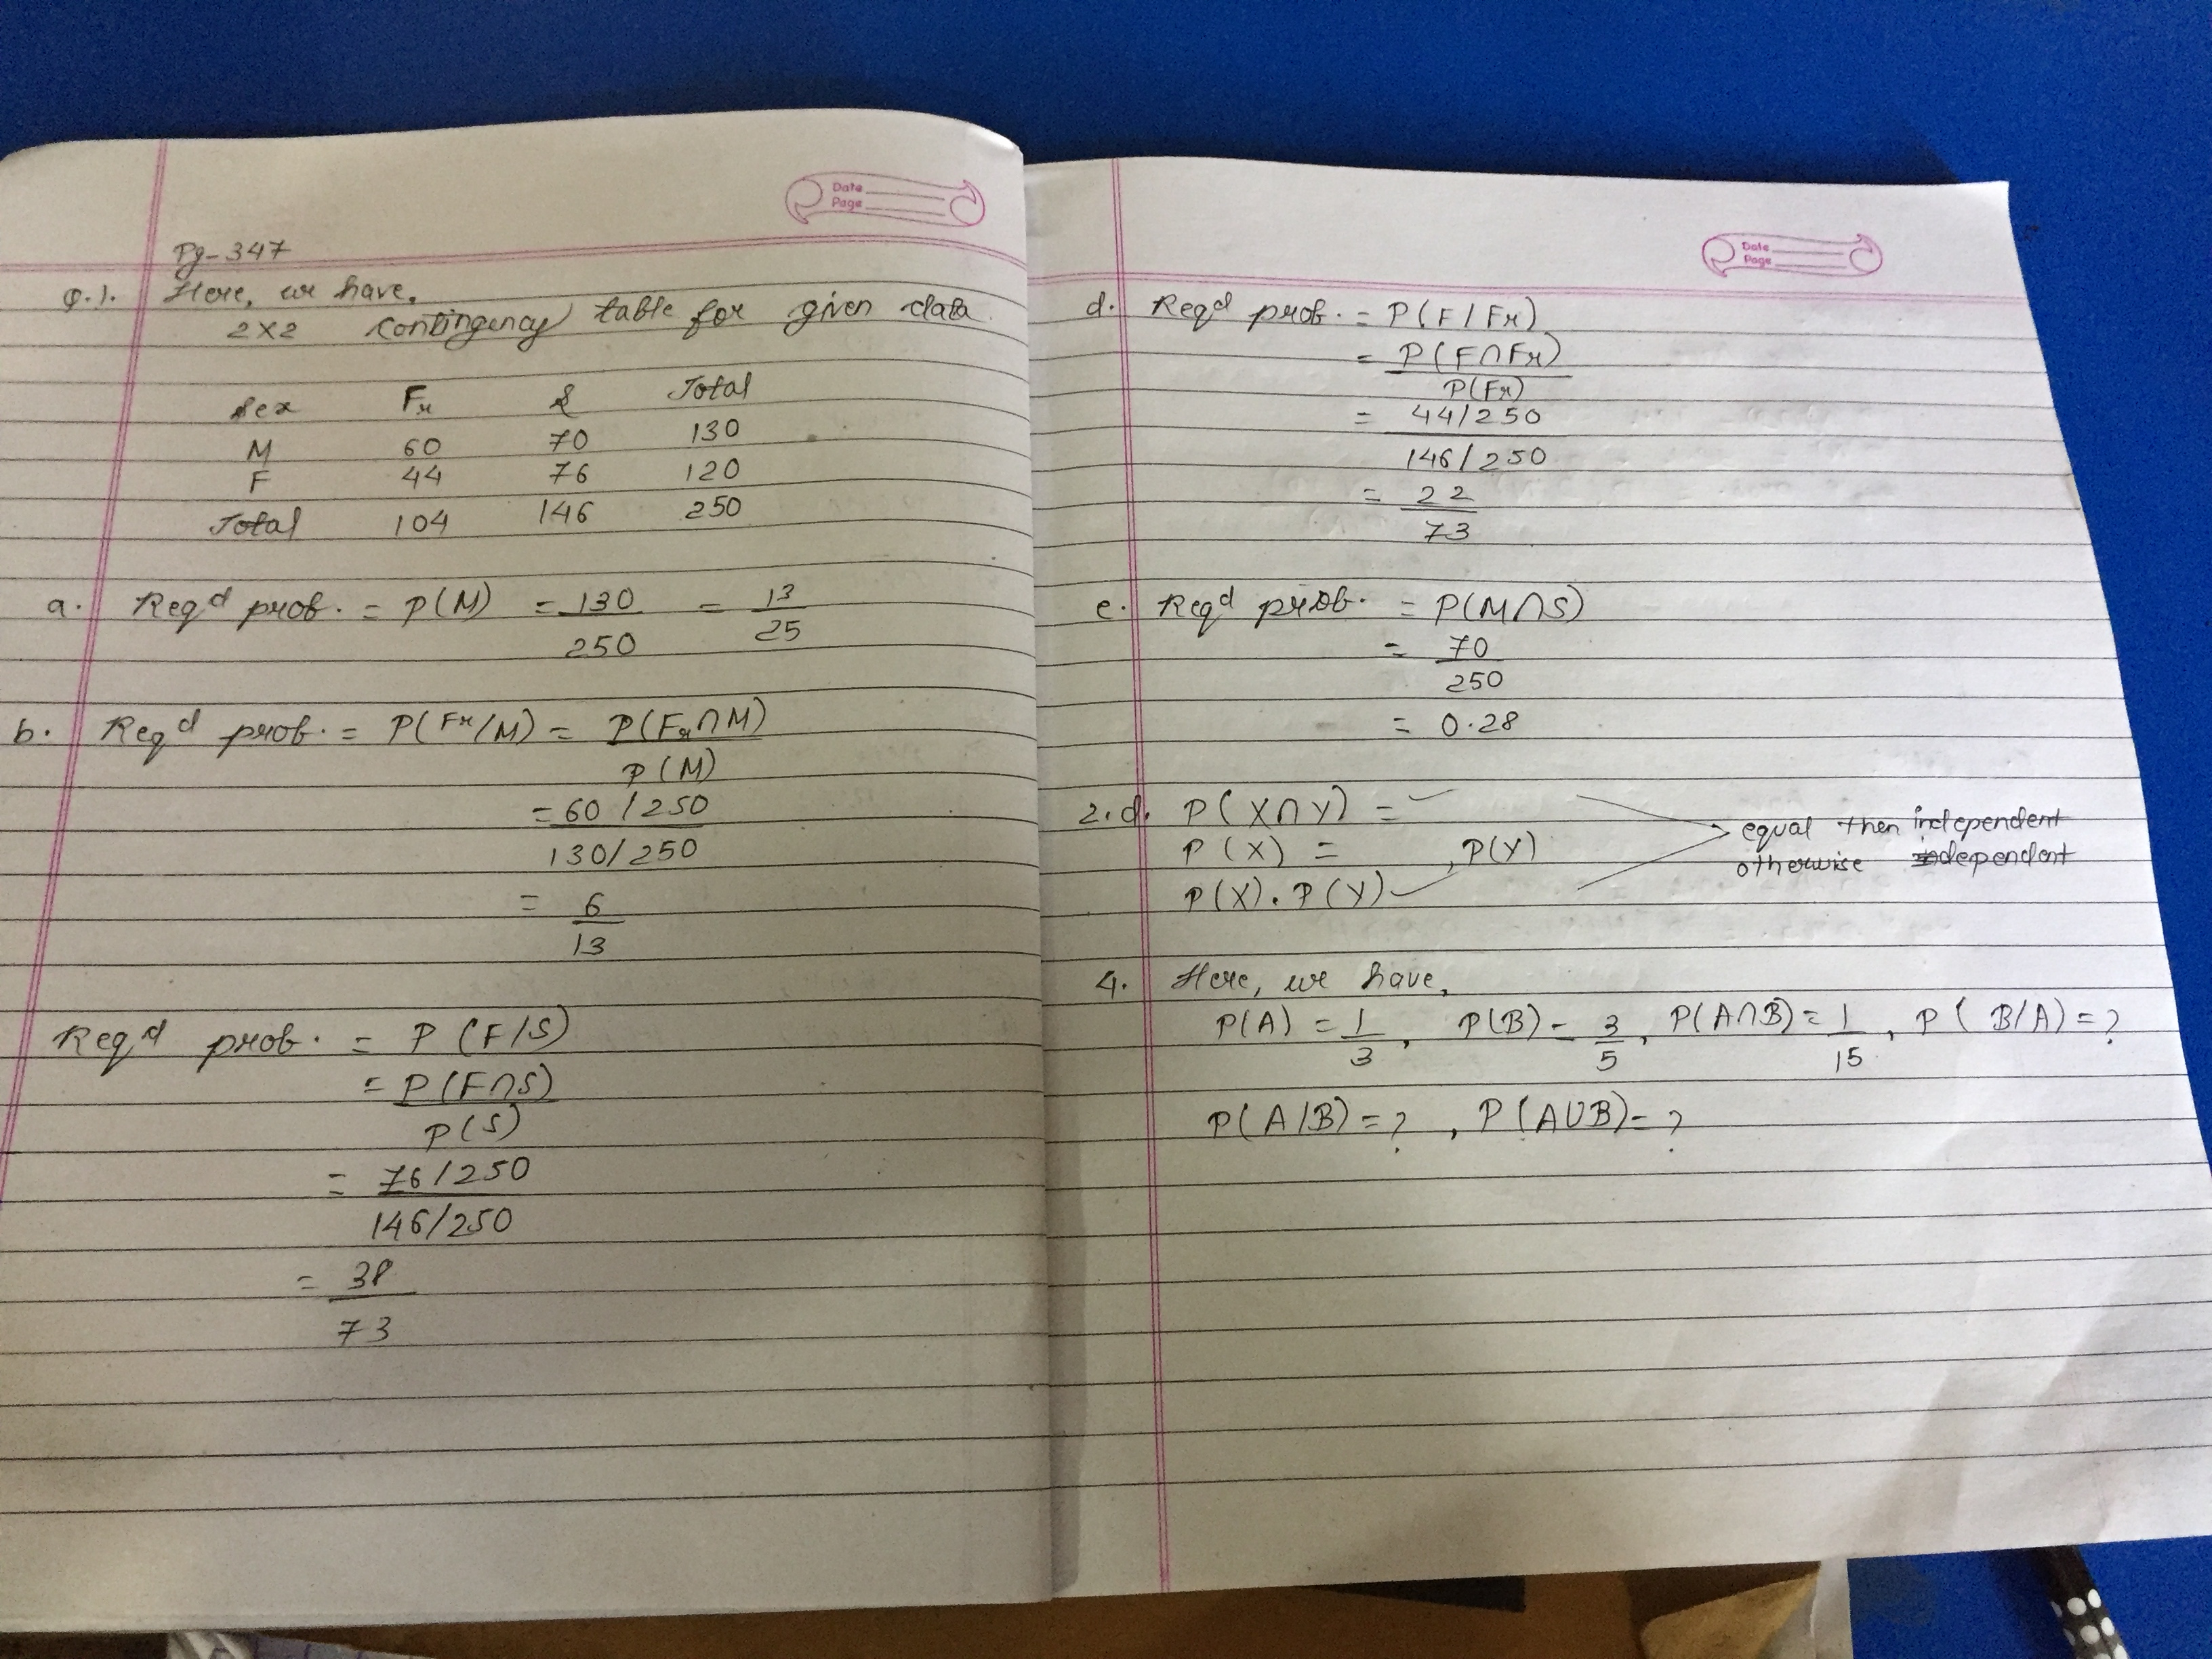 Date
Page
Pg-347
Q.1. Here, we have,
2×2 contingency table for given data
Sex Fr S Total
M 60 70 130
F 44 76 120
Total 104 146 250
a. Reqd prob. = P(M) = 130/250 = 13/25
b. Reqd prob. = P(Fr/M) = P(Fr∩M)
P(M)
= 60/250
130/250
= 6
13
Reqd prob. = P(F/S)
= P(F∩S)
P(S)
= 76/250
146/250
= 38
73
Date
Page
d. Reqd prob. = P(F/Fr)
= P(F∩Fr)
P(Fr)
= 44/250
146/250
= 22
73
e. Reqd prob. = P(M∩S)
= 70
250
= 0.28
2.d. P(X∩Y) =
P(X) = , P(Y)
P(X).P(Y)
equal then independent
otherwise dependent
4. Here, we have,
P(A) = 1/3, P(B) = 3/5, P(A∩B) = 1/15, P(B/A) = ?
P(A/B) = ?, P(A∪B) = ?